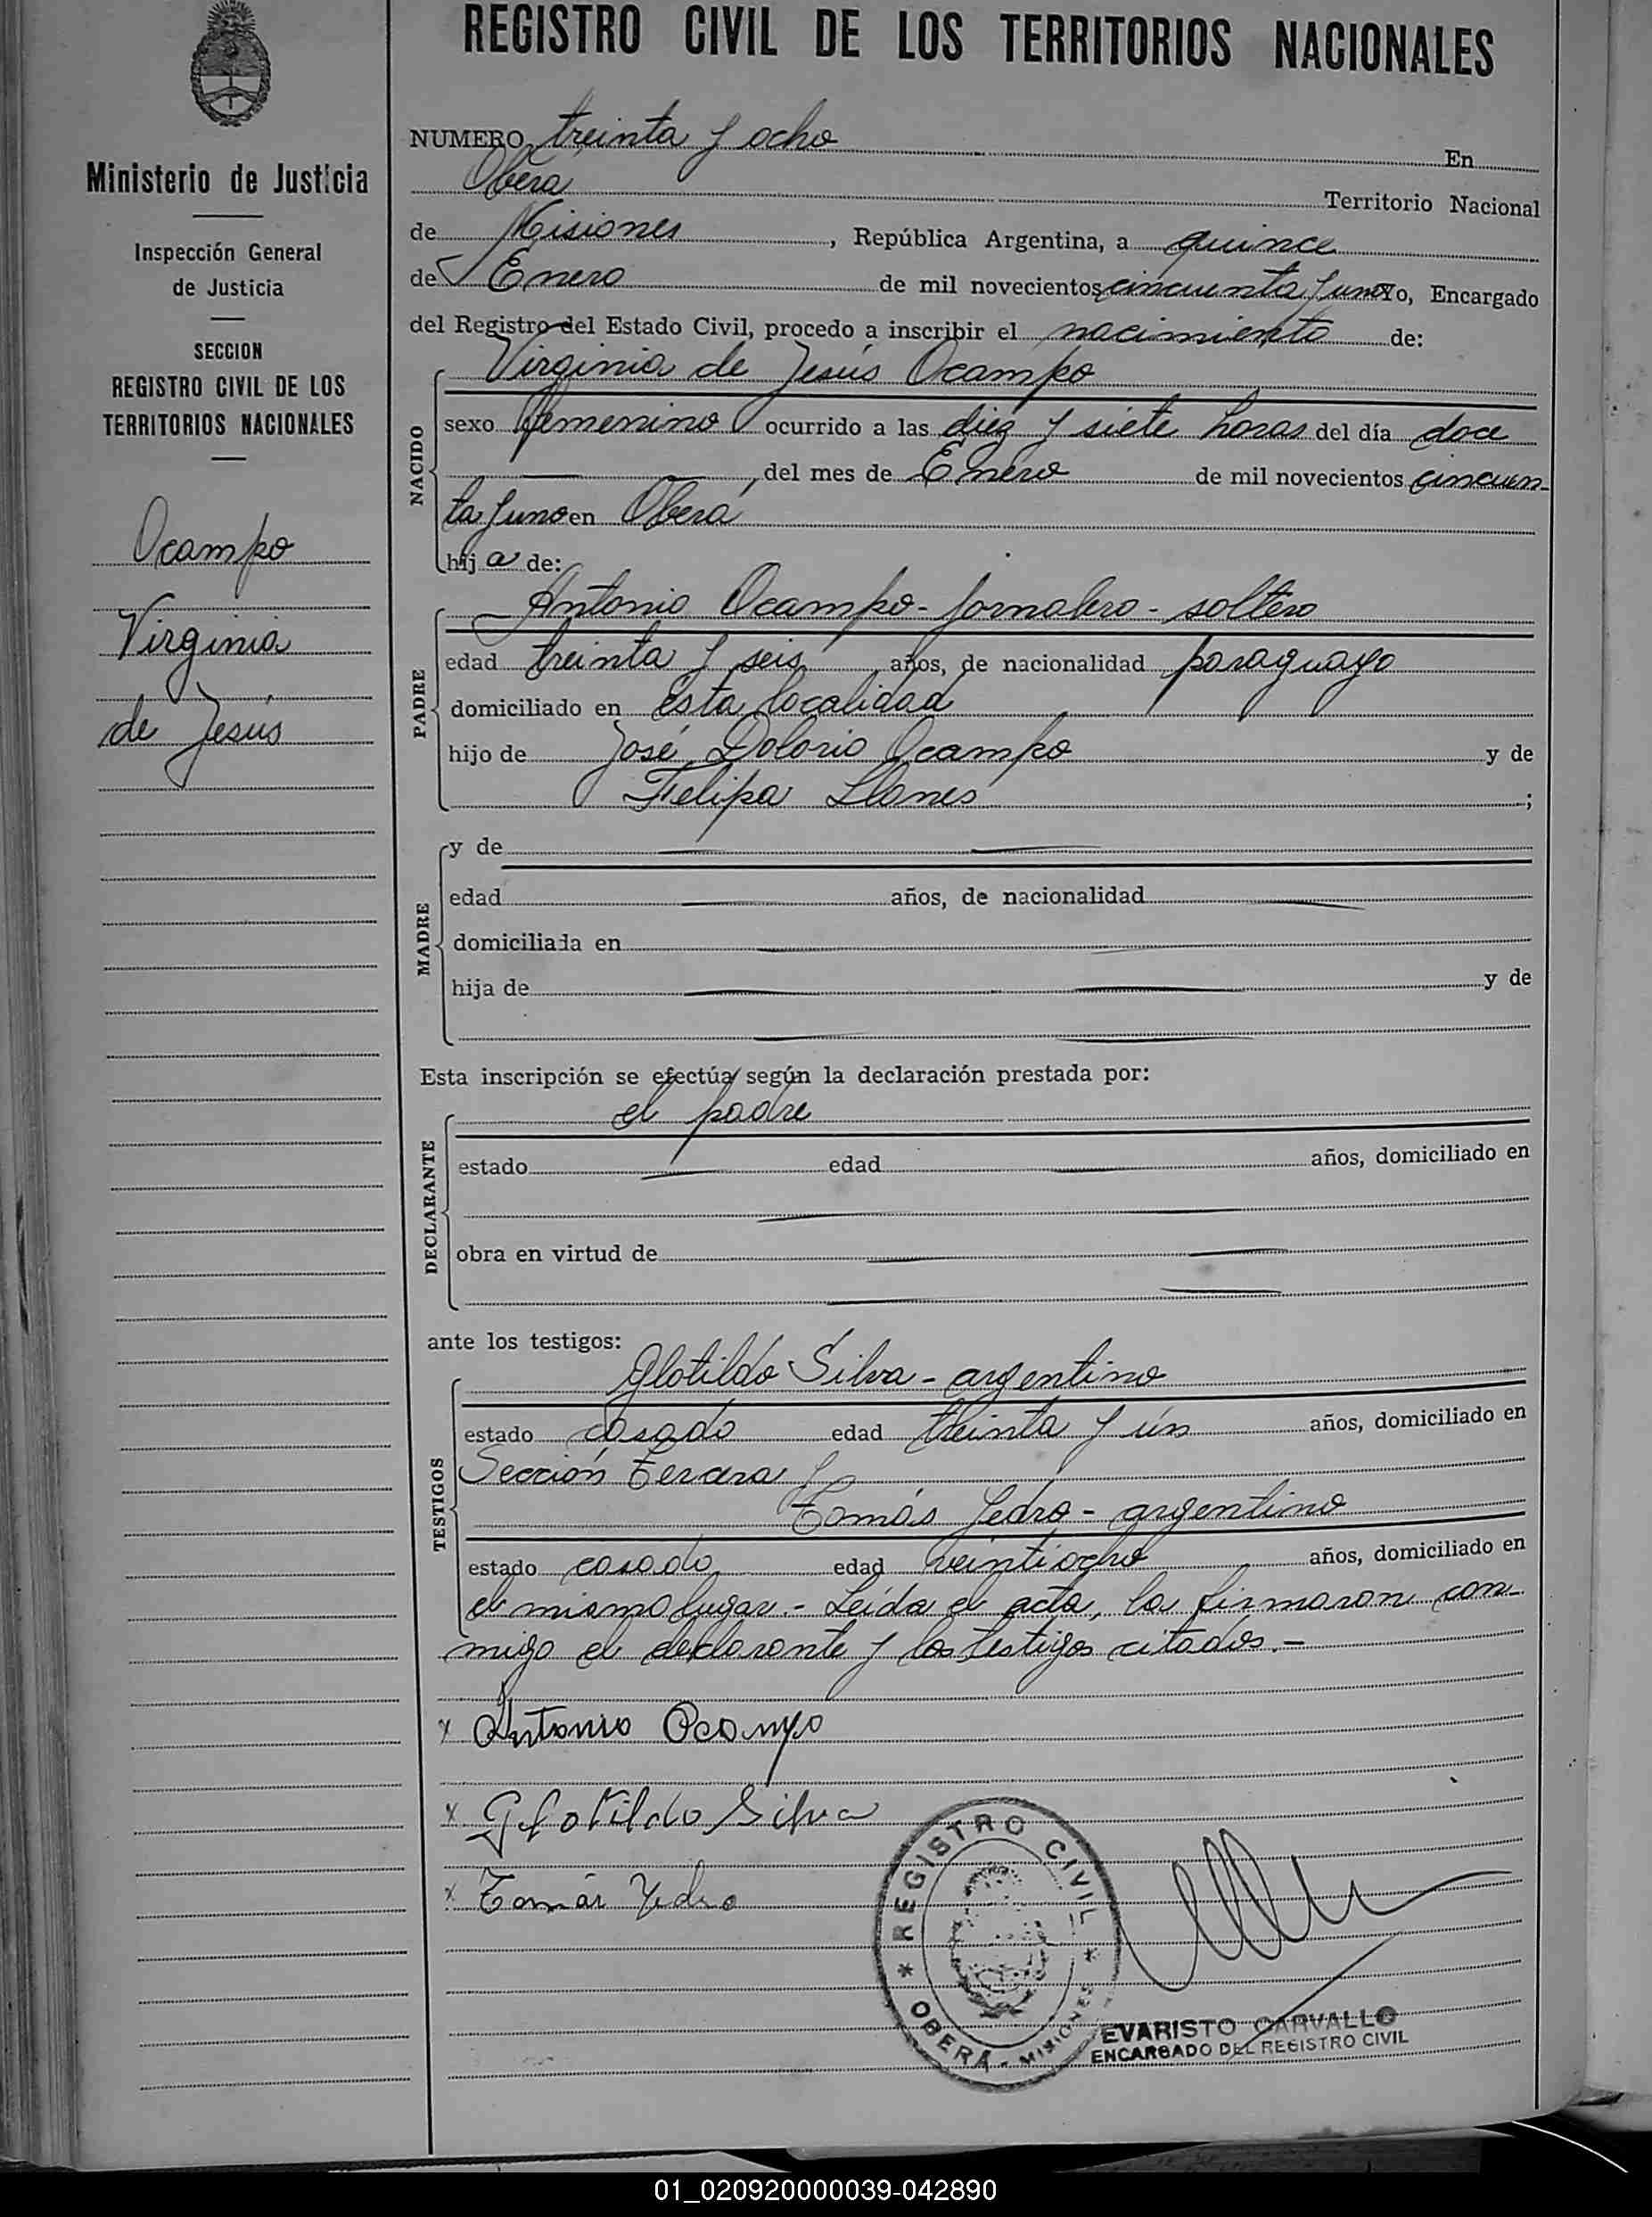 REGISTRO CIVIL DE LOS TERRITORIOS NACIONALES
Ministerio de Justicia
Inspección General
de Justicia
SECCION
REGISTRO CIVIL DE LOS
TERRITORIOS NACIONALES
Ocampo
Virginia
de Jesús
NUMERO treinta y ocho En
Oberá Territorio Nacional
de Misiones, República Argentina, a quince
de Enero de mil novecientos cincuenta y uno Yo, Encargado
del Registro del Estado Civil, procedo a inscribir el nacimiento de:
NACIDO
Virginia de Jesús Ocampo
sexo femenino ocurrido a las diez y siete horas del día doce
, del mes de Enero de mil novecientos cincuen-
ta y uno en Oberá
hij a de:
PADRE
Antonio Ocampo - jornalero - soltero
edad treinta y seis años, de nacionalidad paraguayo
domiciliado en esta localidad
hijo de José Dolorio Ocampo y de
Felipa Llanes ;
MADRE
y de
edad años, de nacionalidad
domiciliada en
hija de y de
Esta inscripción se efectúa según la declaración prestada por:
DECLARANTE
el padre
estado edad años, domiciliado en
obra en virtud de
ante los testigos:
TESTIGOS
Glotildo Silva - argentino
estado casado edad treinta y un años, domiciliado en
Sección tercera y
Tomás Yedro - argentino
estado casado edad veintiocho años, domiciliado en
el mismo lugar.- Leída el acta, la firmaron con-
migo el declarante y los testigos citados.-
x Antonio Ocampo
x Glotildo Silva
x Tomás Yedro
* REGISTRO CIVIL *
OBERÁ - MISIONES
EVARISTO CARVALLO
ENCARGADO DEL REGISTRO CIVIL
01_020920000039-042890